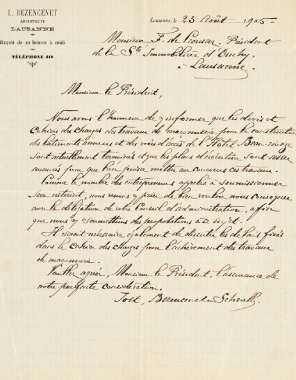 L. BEZENCENET
ARCHITECTE
LAUSANNE
Reçoit de 10 heures à midi
TÉLÉPHONE 818
Lausanne, le 23 Août 1905
Monsieur F. de Président
de la Sté Immobilière d'Ouchy
à Lausanne.
Monsieur le Président,
Nous avons l'honneur de vous informer que les devis et
Cahiers des charges des travaux de maçonnerie pour la construction
des bâtiments annexes et des de l'Hôtel Beau-rivage
sont actuellement terminés et que les plans d'exécution sont assez
avancés pour que l'on puisse mettre au concours ces travaux.
Comme le nombre des entrepreneurs appelés à soumissionner
est restreint, nous venons vous prier de bien vouloir nous convoquer
avec la délégation de votre Conseil d'administration, afin
que nous vous soumettions des propositions à ce sujet.
Il serait nécessaire également de discuter les délais fixés
dans le cahier des charges pour l'achèvement des travaux
de maçonnerie.
Veuillez agréer, Monsieur le Président, l'assurance de
notre parfaite considération.
Jost, Bezencenet &